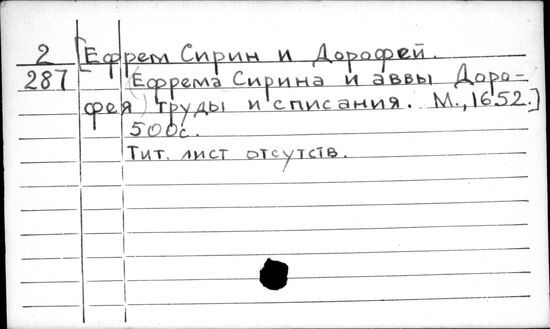 2 [Ефрем Сирин и Дорофей.
287 (Ефрема Сирина и аввы Доро=
фея) труды и списания. М., 1652.]
500с.
Тит. лист отсутств.